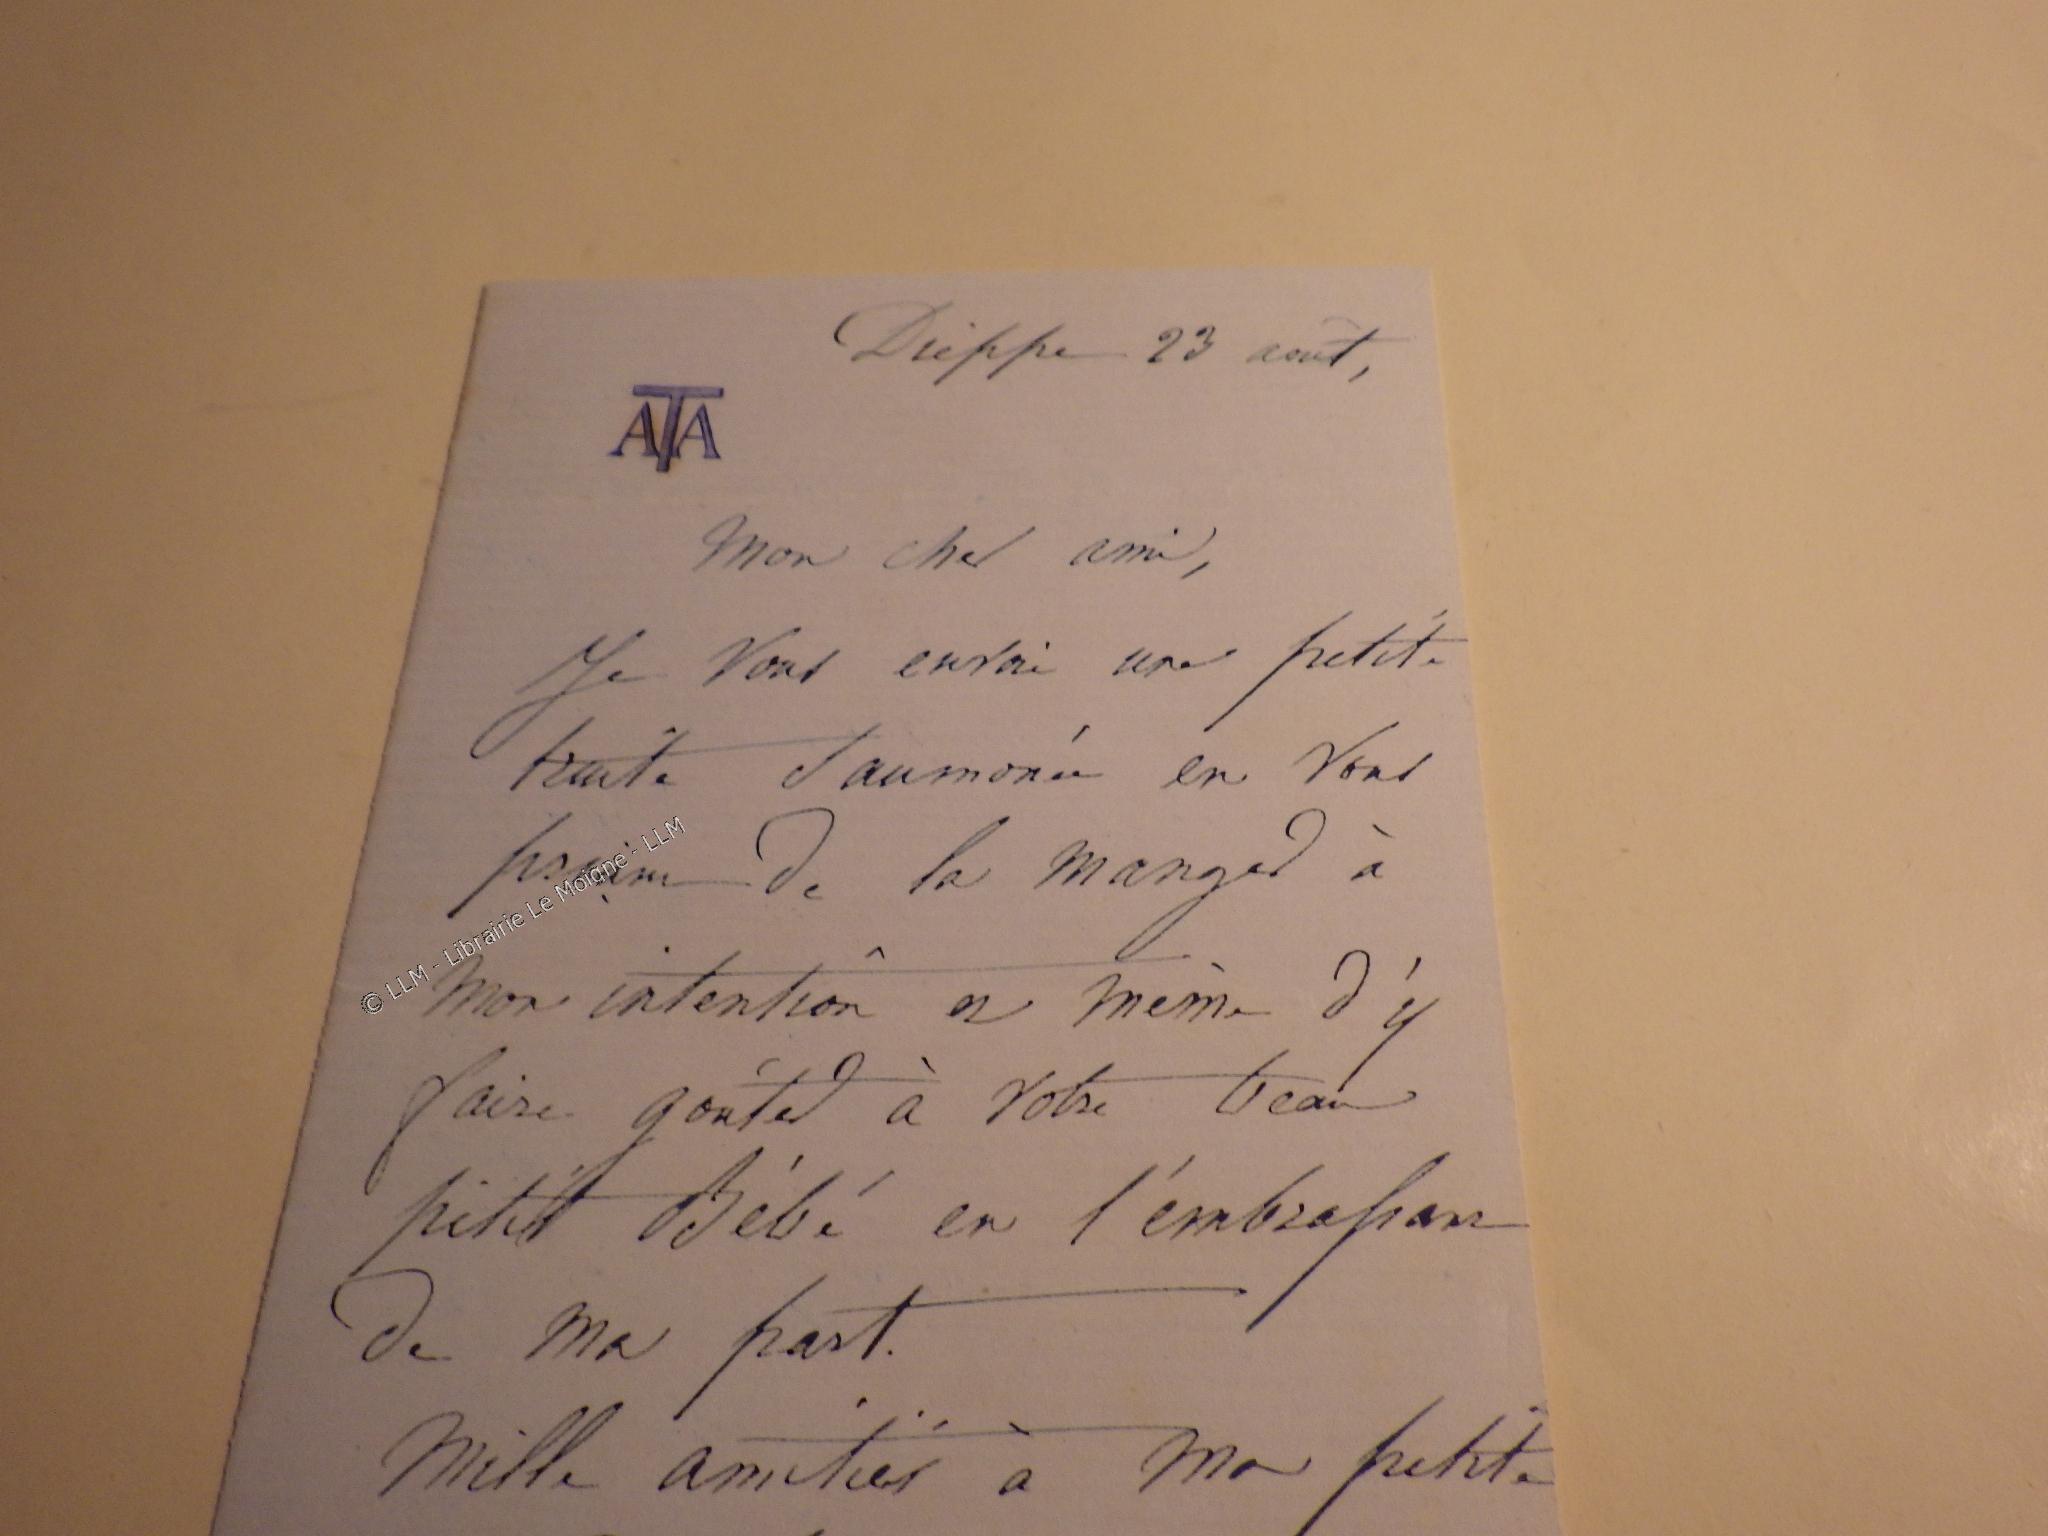 Dieppe 23 août,
ATA
Mon cher ami,
Je vous envoi une petite
truite saumonée en vous
priant de la manger à
mon intention et même d'y
faire goûter à votre beau
petit Bébé en l'embrassant
de ma part.
Mille amitiés à ma petite
© LLM - Librairie Le Moigne - LLM